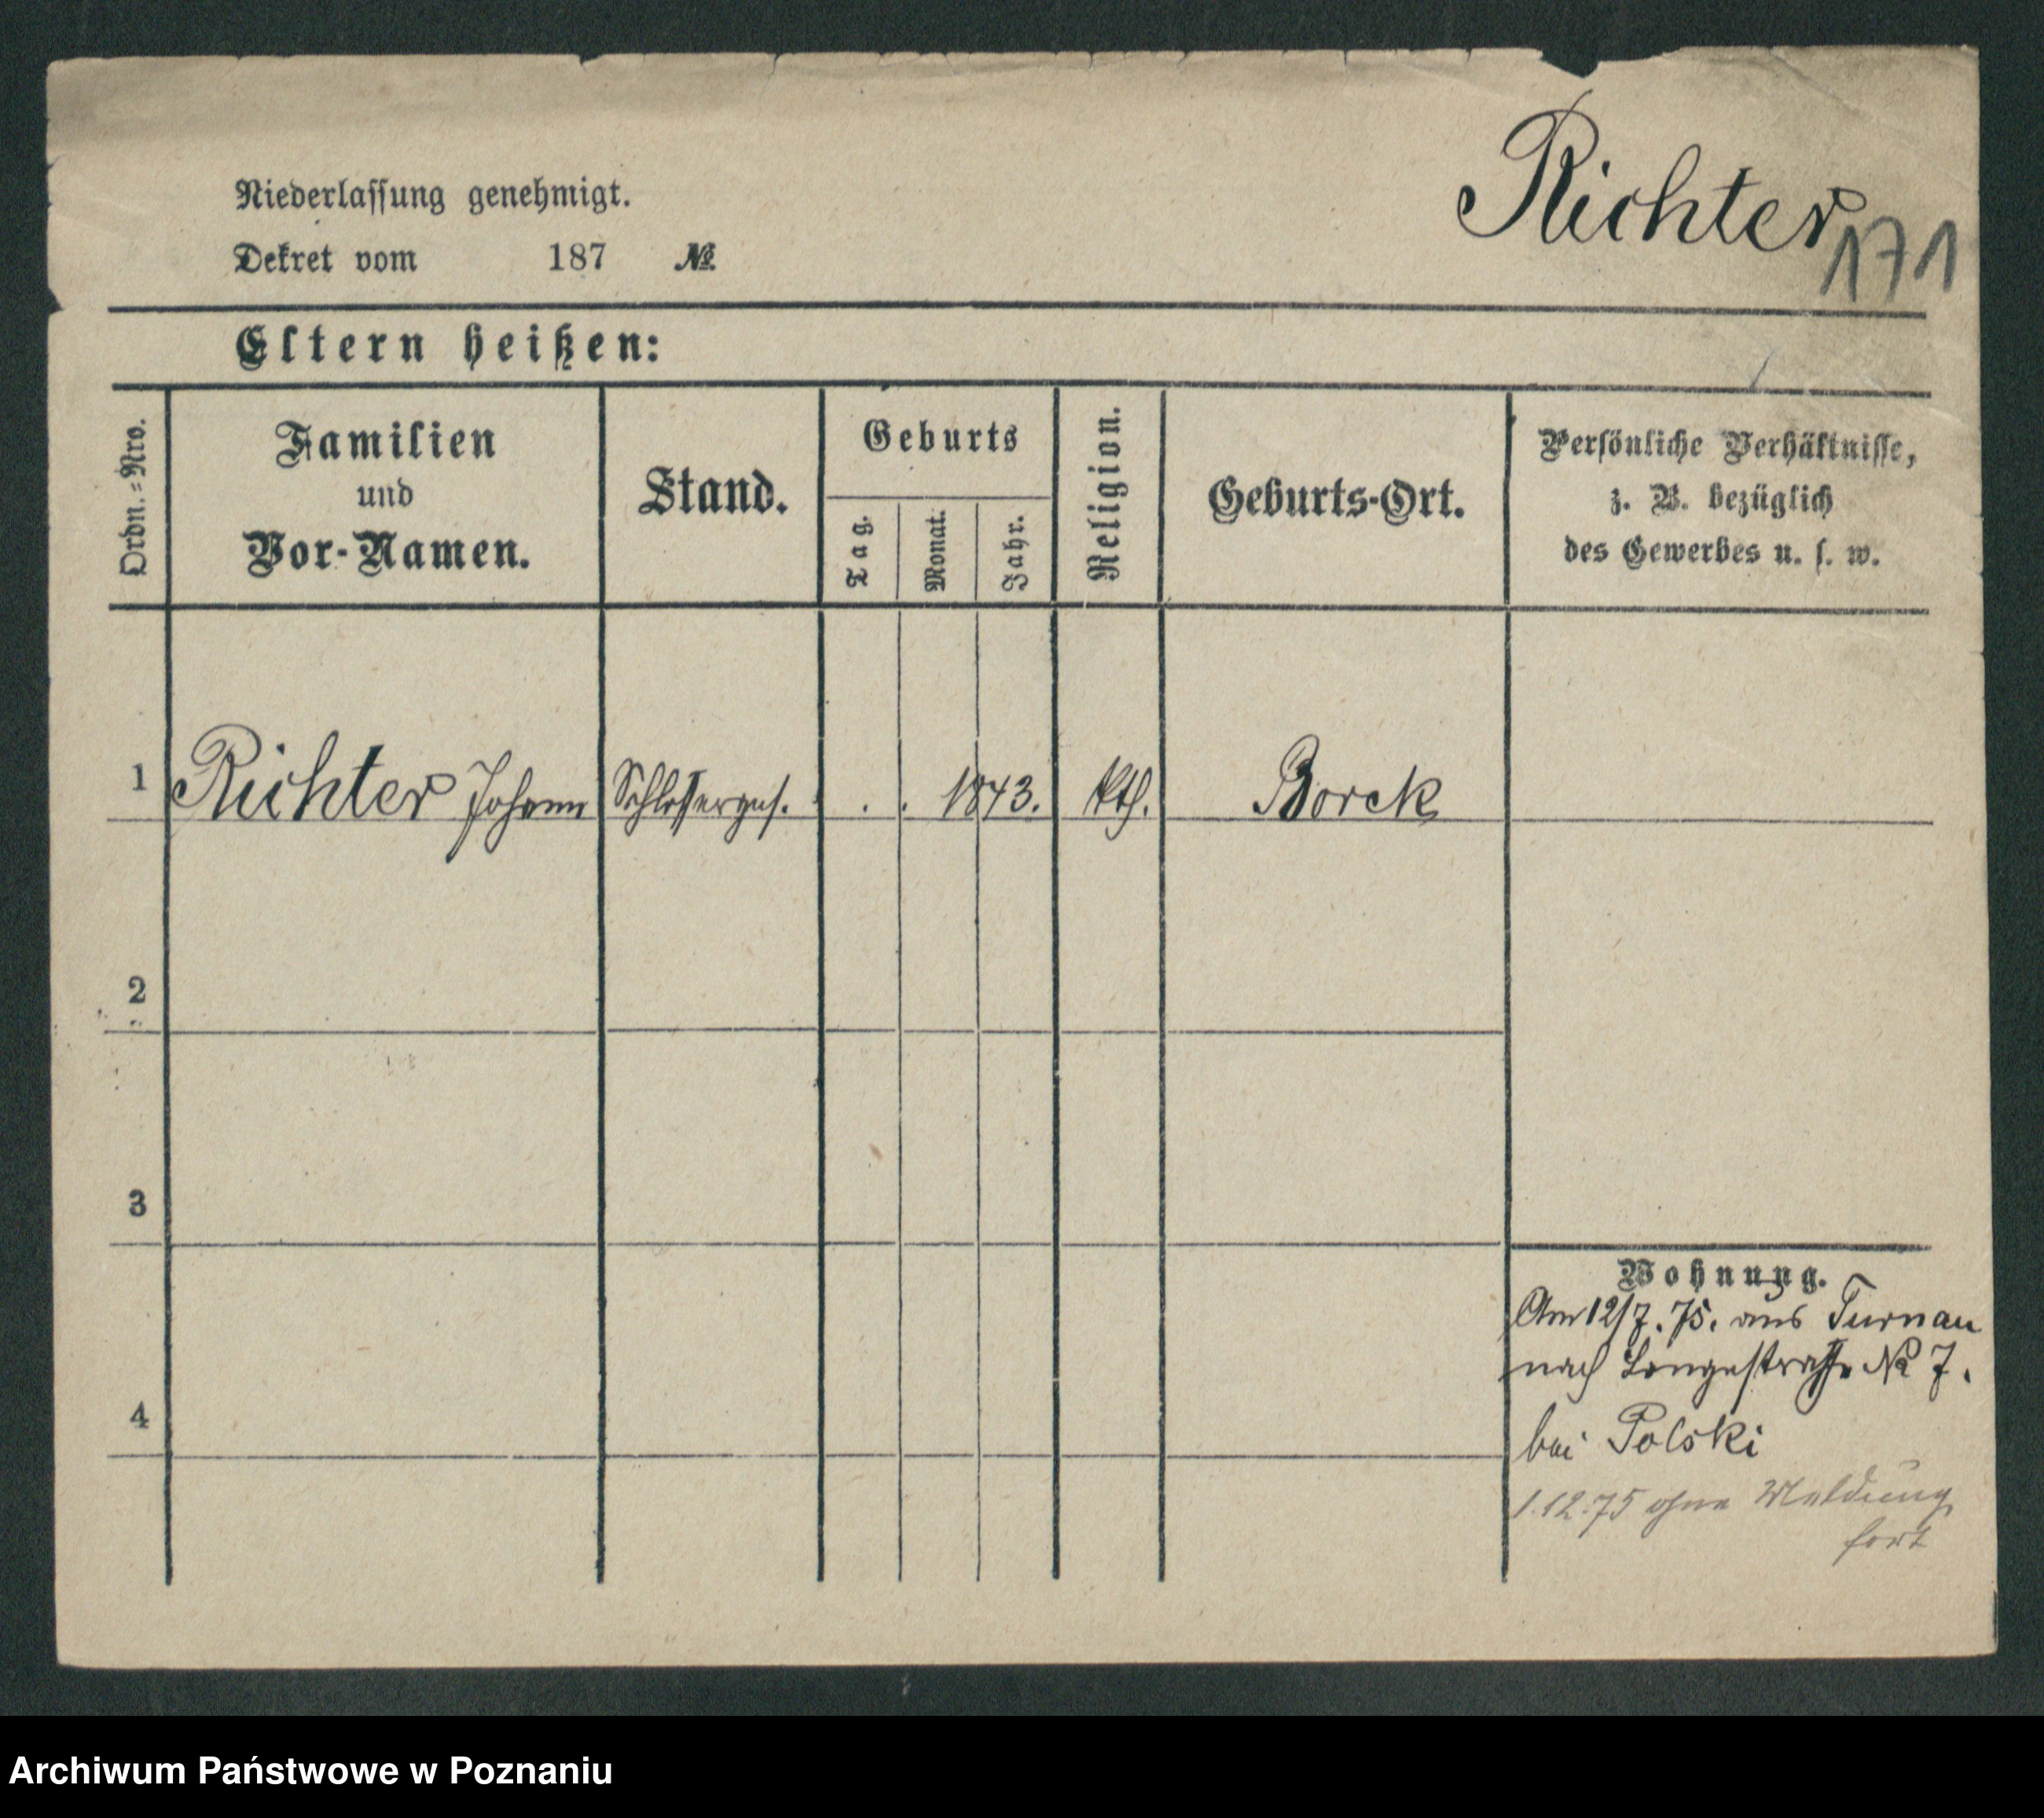 Richter
171
Niederlassung genehmigt.
Dekret vom 187 №
Eltern heißen:
Ordn.-Nro.
Familien
und
Vor-Namen.
Stand.
Geburts
Tag.
Monat.
Jahr.
Religion.
Geburts-Ort.
Persönliche Verhältnisse,
z. B. bezüglich
des Gewerbes u. s. w.
1 Richter Johann Schlosserges. . . 1843. kth. Borek
2
3
4
Wohnung.
Am 12/7. 75. aus Turnau
nach Langestrasse № 7.
bei Polski
1.12.75 ohne Meldung
fort
Archiwum Państwowe w Poznaniu